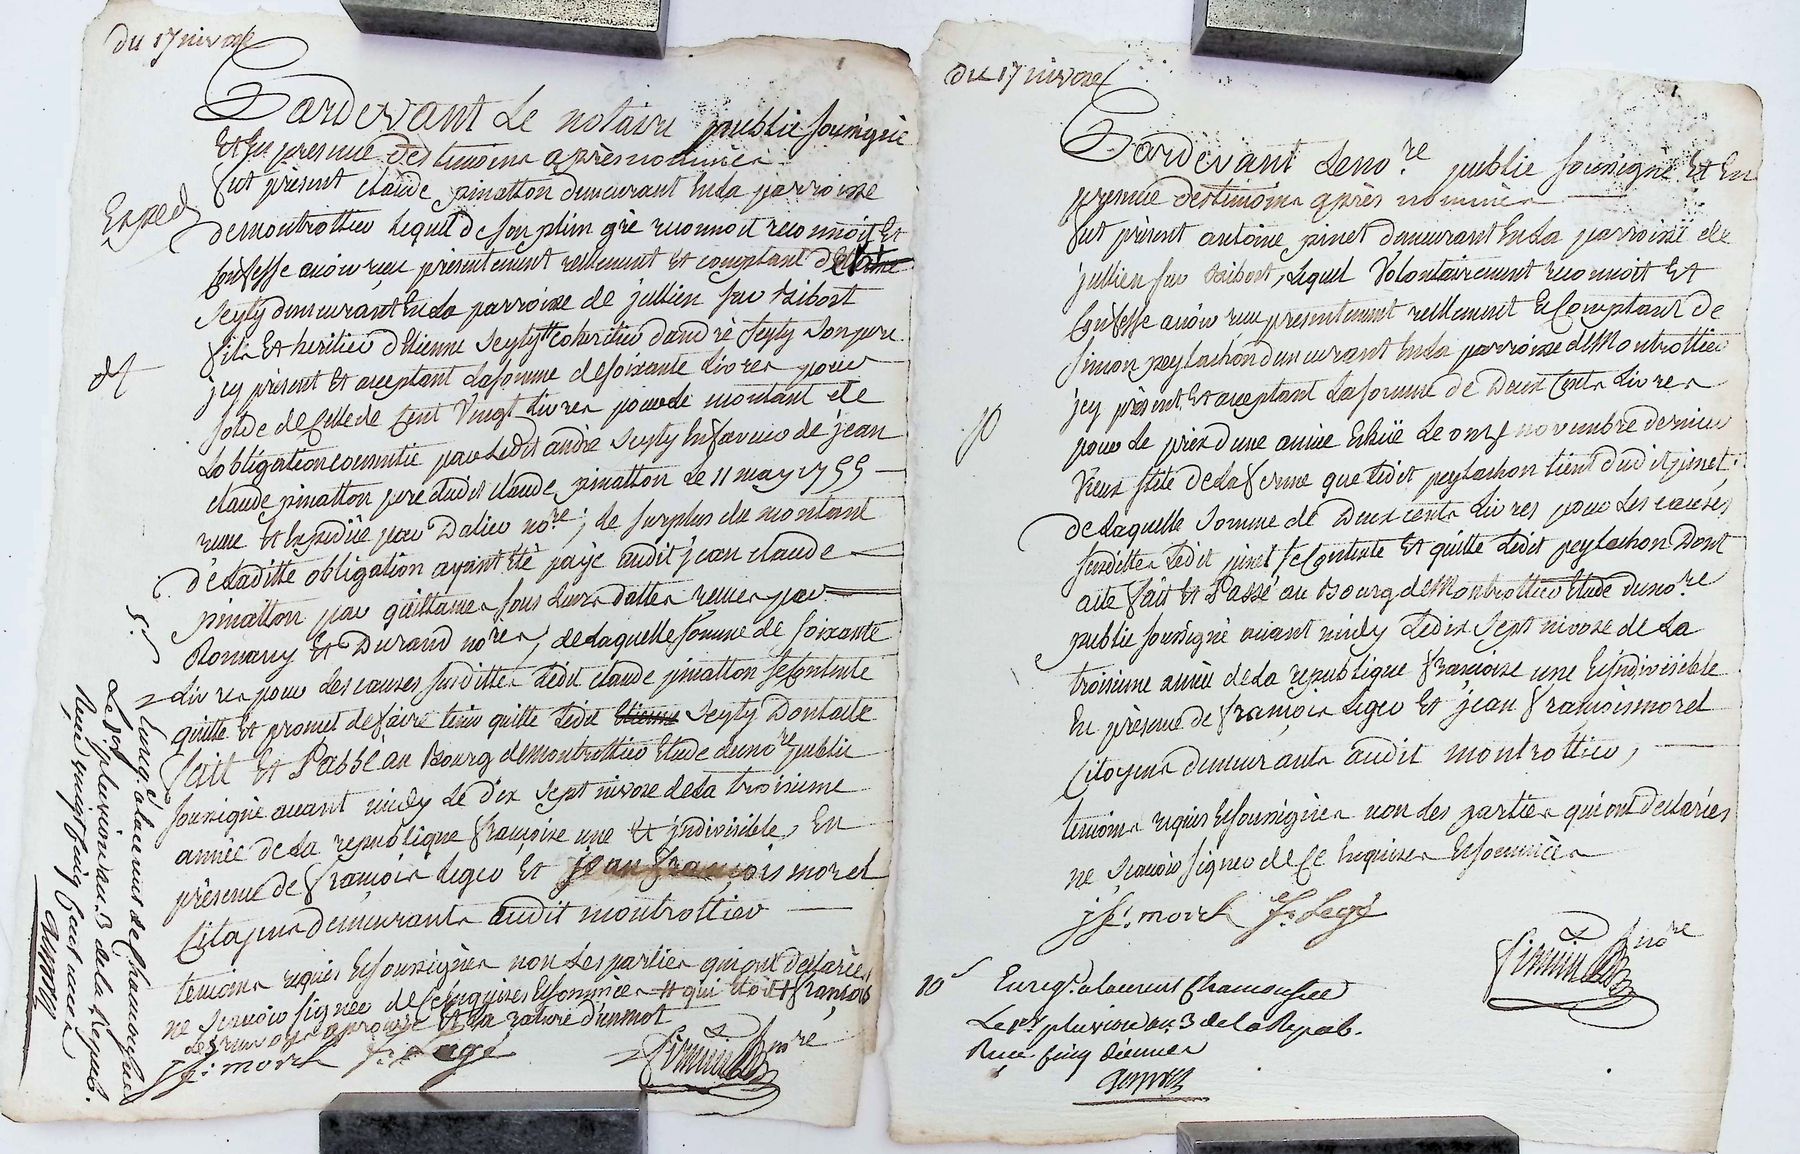 du 17 nivose
Pardevant Le notaire public soussigné
Et En presence des temoins après nommés
fut présent claude pinatton demeurant En La parroisse
Exped
de montrottier Lequel de son plein gré reconnoit reconnoit Et
Confesse avoir reçu présentement réellement Et comptant
Seyty demeurant En La parroisse de jullien sur Bibost
fils Et heritier d'Etienne Seyty coheritier d'andré Seyty Son pere
jcy présent Et acceptant La somme de soixante Livres pour
Solde de Celle de Cent Vingt Livres pour le montant de
L'obligation consentie par Ledit andré Seyty En faveur de jean
claude pinatton pere dudit claude pinatton Le 11 may 1755
reçue Et Expediée par Dalier nore; Le surplus du montant
de Laditte obligation ayant Eté payé audit jean claude
pinatton par quittances sous Leurs dattes reçues par
Romany Et Durand nores, de Laquelle somme de soixante
Livres pour Les causes susdittes Ledit claude pinatton se Contente
quitte Et promet de faire tenir quitte Ledit Etienne Seyty Dont acte
fait Et Passé au Bourg de montrottier Etude du nore public
soussigné avant midy Le dix Sept nivose de La troisieme
année de La republique françoise une Et jndivisible, En
présence de françois Leger Et jean françois morel
Citoyens demeurants audit montrottier
temoins requis Et soussignés non Les parties qui ont declarées
ne Scavoir signer de Ce Enquises Et sommées # qui etoit # françois
approuvé Et La rature d'un mot
jf: morel f: Legé
nore
5s
Enreg. a Laurent de Chamousset
Le 1er pluviose an 3 de la Repub.
Reçu vingt cinq
du 17 nivose
Pardevant Le nore public soussigné Et En
presence des temoins après nommés
fut présent antoine pinet demeurant En La parroisse de
jullien sur Bibost, Lequel Volontairement reconnoit Et
Confesse avoir reçu presentement réellement Et Comptant de
Simon peylachon demeurant En La parroisse de Montrottier
jcy présent Et acceptant La somme de Deux Cents Livres
10
pour Le prix d'une année Echüe Le onze novembre dernier
Vieux stile de La ferme que Ledit peylachon tient dudit pinet;
de Laquelle Somme de Deux cents Livres pour Les causes
susdittes Ledit pinet se Contente Et quitte Ledit peylachon Dont
acte fait Et Passé au Bourg de Montrottier Etude du nore
public soussigné avant midy Le dix Sept nivose de La
troisieme année de La republique françoise une Et jndivisible
En présence de françois Leger Et jean françois morel
Citoyens demeurants audit montrottier,
temoins requis Et soussignés non Les parties qui ont declarées
ne Scavoir signer de Ce Enquises Et sommées
jf: morel f: Legé
nore
10s Enreg. a Laurent Chamousset
Le 1er pluviose an 3 de la Repub.
Reçu Cinq